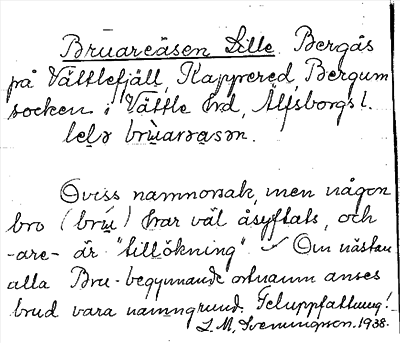 Bruareåsen Lille Bergås
på Vättlefjäll, Kappered, Bergum
socken i Vättle hrd, Älfsborgs l.
lelə brùarəasən.
Oviss namnorsak, men någon
bro (brú) har väl åsyftats, och
-are- är "tillökning". ✓ Om nästan
alla Bru-begynnande ortnamn anses
brud vara namngrund. Feluppfattning!
L. M. Svenungsson. 1938.